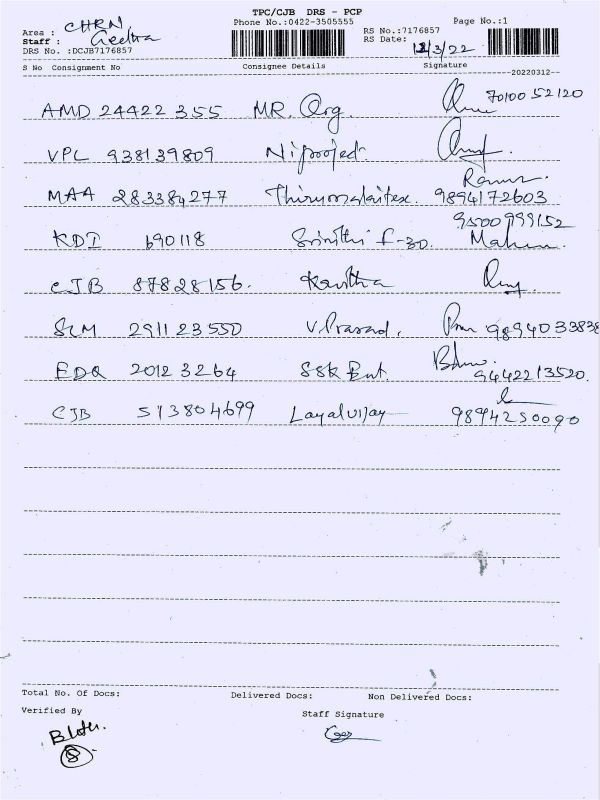 TPC/CJB DRS - PCP
Area : CHRN Phone No.:0422-3505555 RS No.:7176857 Page No.:1
Staff : Geetha RS Date: 12/3/22
DRS No. :DCJB7176857
S No Consignment No Consignee Details Signature
20220312
AMD 24422 355 MR. Org. 70100 52120
VPL 938139809 Ni project
MAA 283384277 Thirumalaitex. 9894172603
9500999152
KDI 690118 Srinithi f-30.
CJB 87828156. Kavitha
SLM 291123550 V. Prasad. 98940 33838
EDQ 2012 3264 SSK Ent. 9442213520.
CJB 513804699 Layalvijay 9894250090
Total No. Of Docs: Delivered Docs: Non Delivered Docs:
Verified By Staff Signature
8